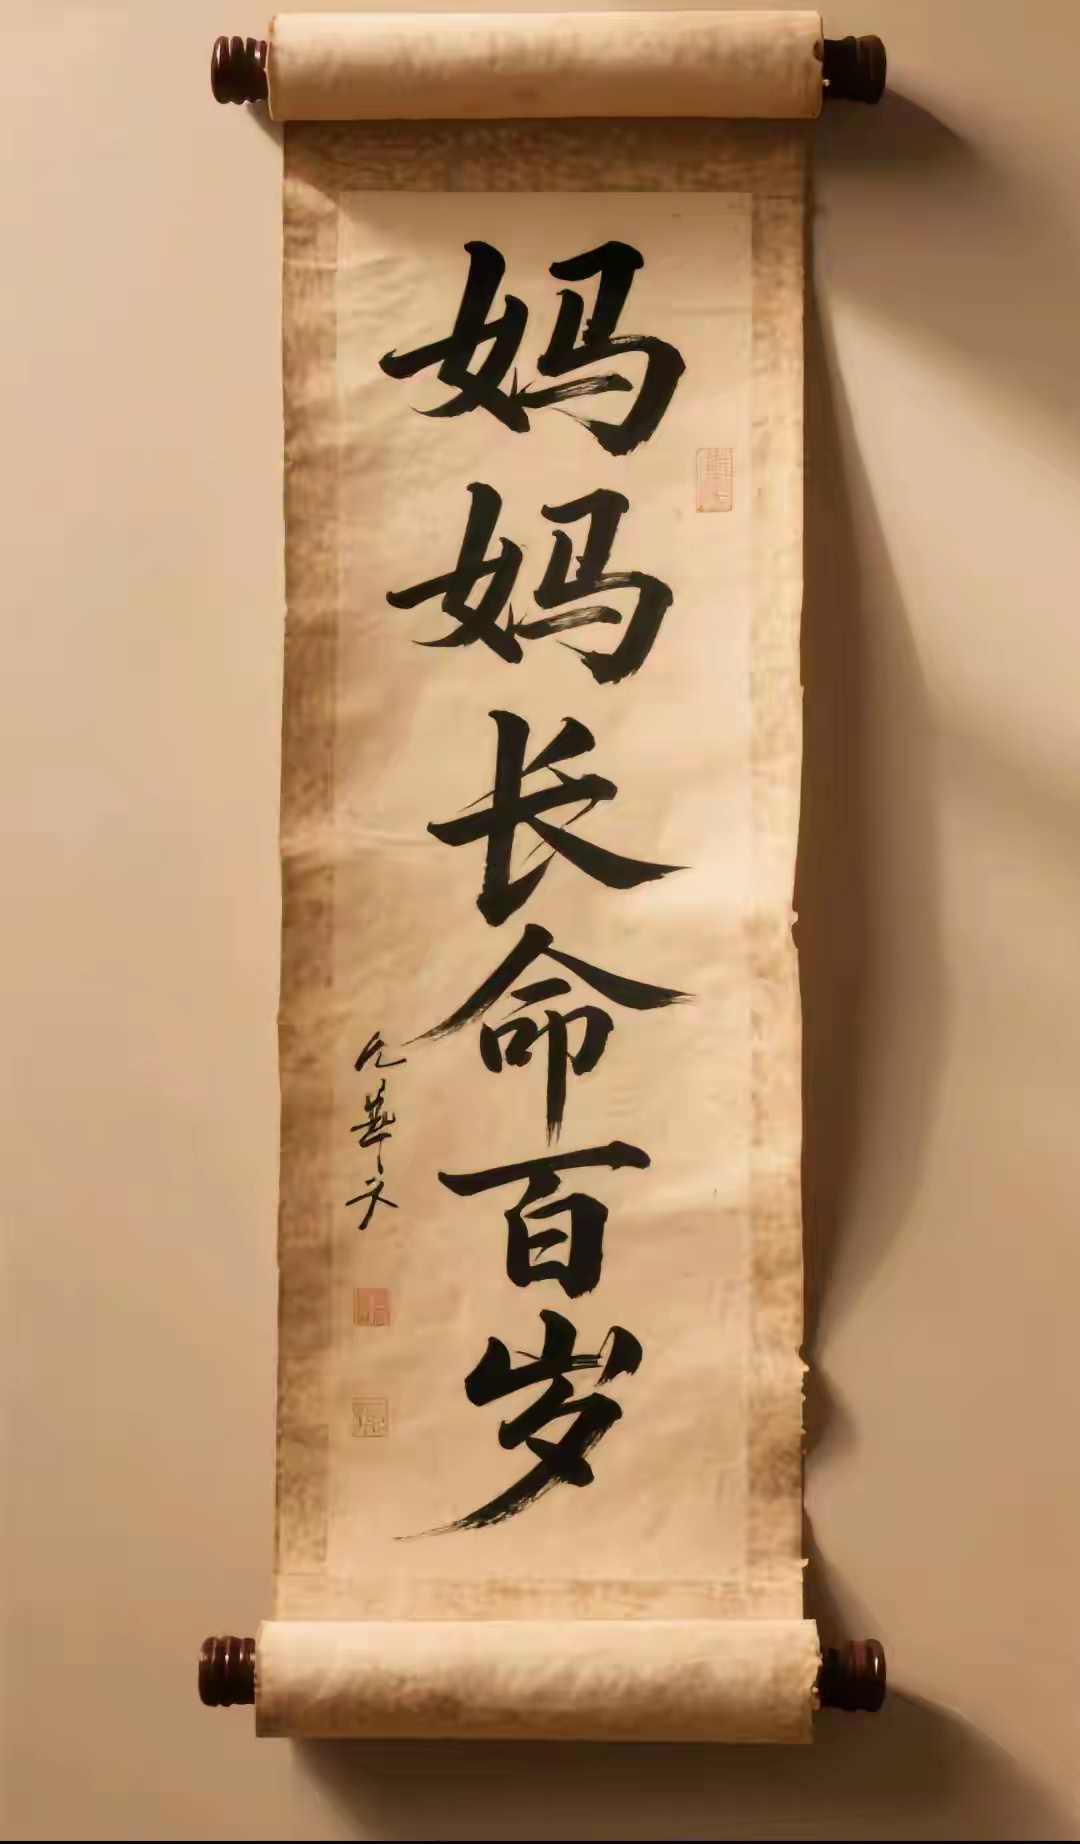 妈妈长命百岁